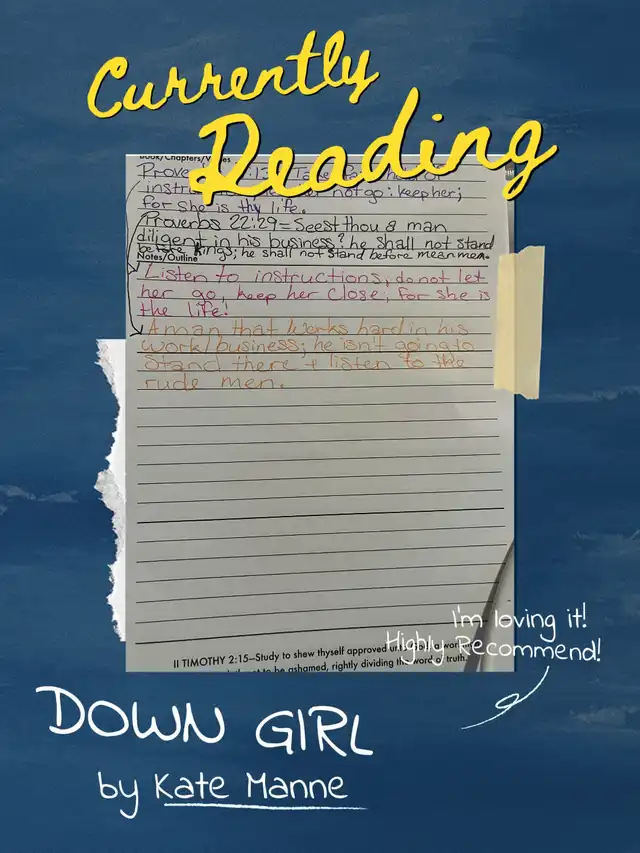 Currently
Reading
Book/Chapters/Verses
instru not go: keep her;
for she is thy life.
Proverbs 22:29=Seest thou a man
diligent in his business? he shall not stand
before kings; he shall not stand before mean men.
Notes/Outline
Listen to instructions, do not let
her go, keep her close, for she is
the life!
A man that works hard in his
work/business; he isn't going to
stand there + listen to the
rude men.
II TIMOTHY 2:15—Study to shew thyself approved a work
to be ashamed, rightly dividing the word of truth.
I'm loving it!
Highly Recommend!
DOWN GIRL
by Kate Manne